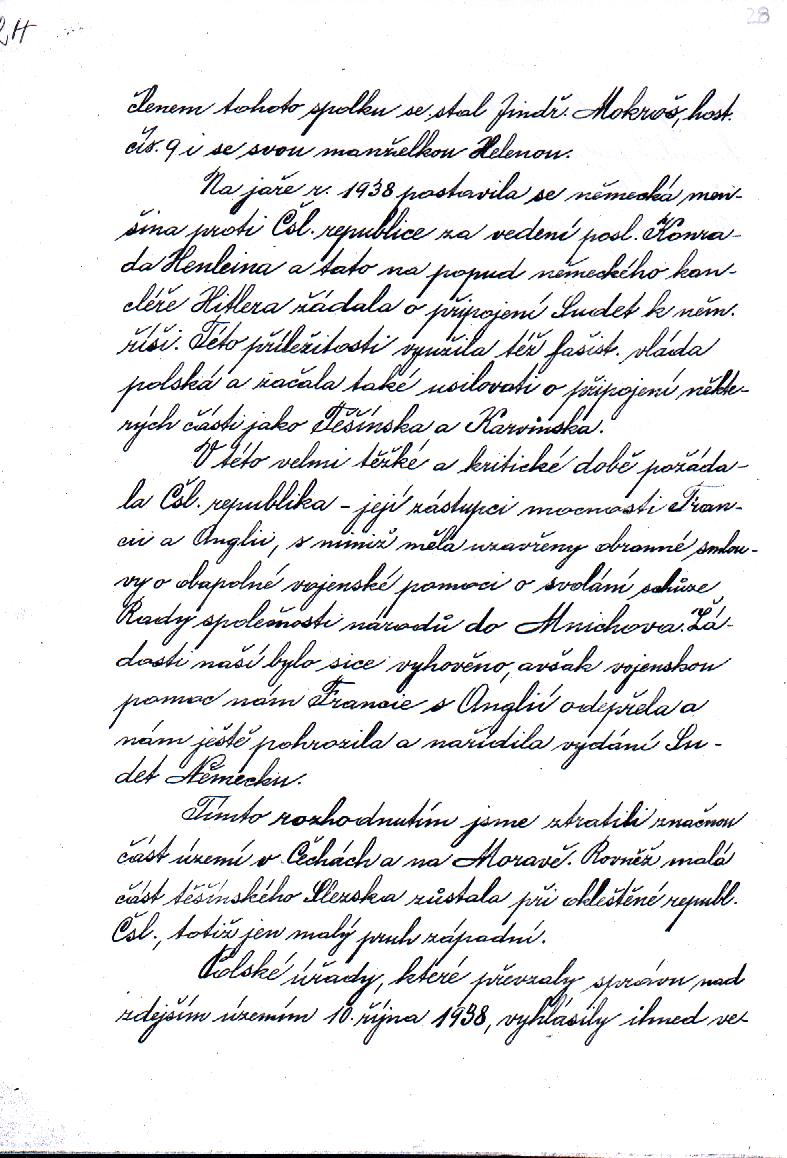 28
24
členem tohoto spolku se stal Jindř. Mokroš, host.
čís. 9 i se svou manželkou Helenou.
Na jaře r. 1938 postavila se německá men-
šina proti Čsl. republice za vedení posl. Konra-
da Henleina a tato na popud německého kan-
cléře Hitlera žádala o připojení Sudet k něm.
říši. Této příležitosti využila též fašist. vláda
polská a začala také usilovati o připojení někte-
rých částí jako Těšínska a Karvinska.
V této velmi těžké a kritické době požáda-
la Čsl. republika - její zástupci mocnosti Fran-
cii a Anglii, s nimiž měla uzavřeny obranné smlou-
vy o obapolné vojenské pomoci o svolání schůze
Rady společnosti národů do Mnichova. Žá-
dosti naší bylo sice vyhověno, avšak vojenskou
pomoc nám Francie s Anglií odepřela a
nám ještě pohrozila a nařídila vydání Su-
det Německu.
Tímto rozhodnutím jsme ztratili značnou
část území v Čechách a na Moravě. Rovněž malá
část těšínského Slezska zůstala při okleštěné republ.
Čsl., totiž jen malý pruh západní.
Polské úřady, které převzaly správu nad
zdejším územím 10. října 1938, vyhlásily ihned ve-